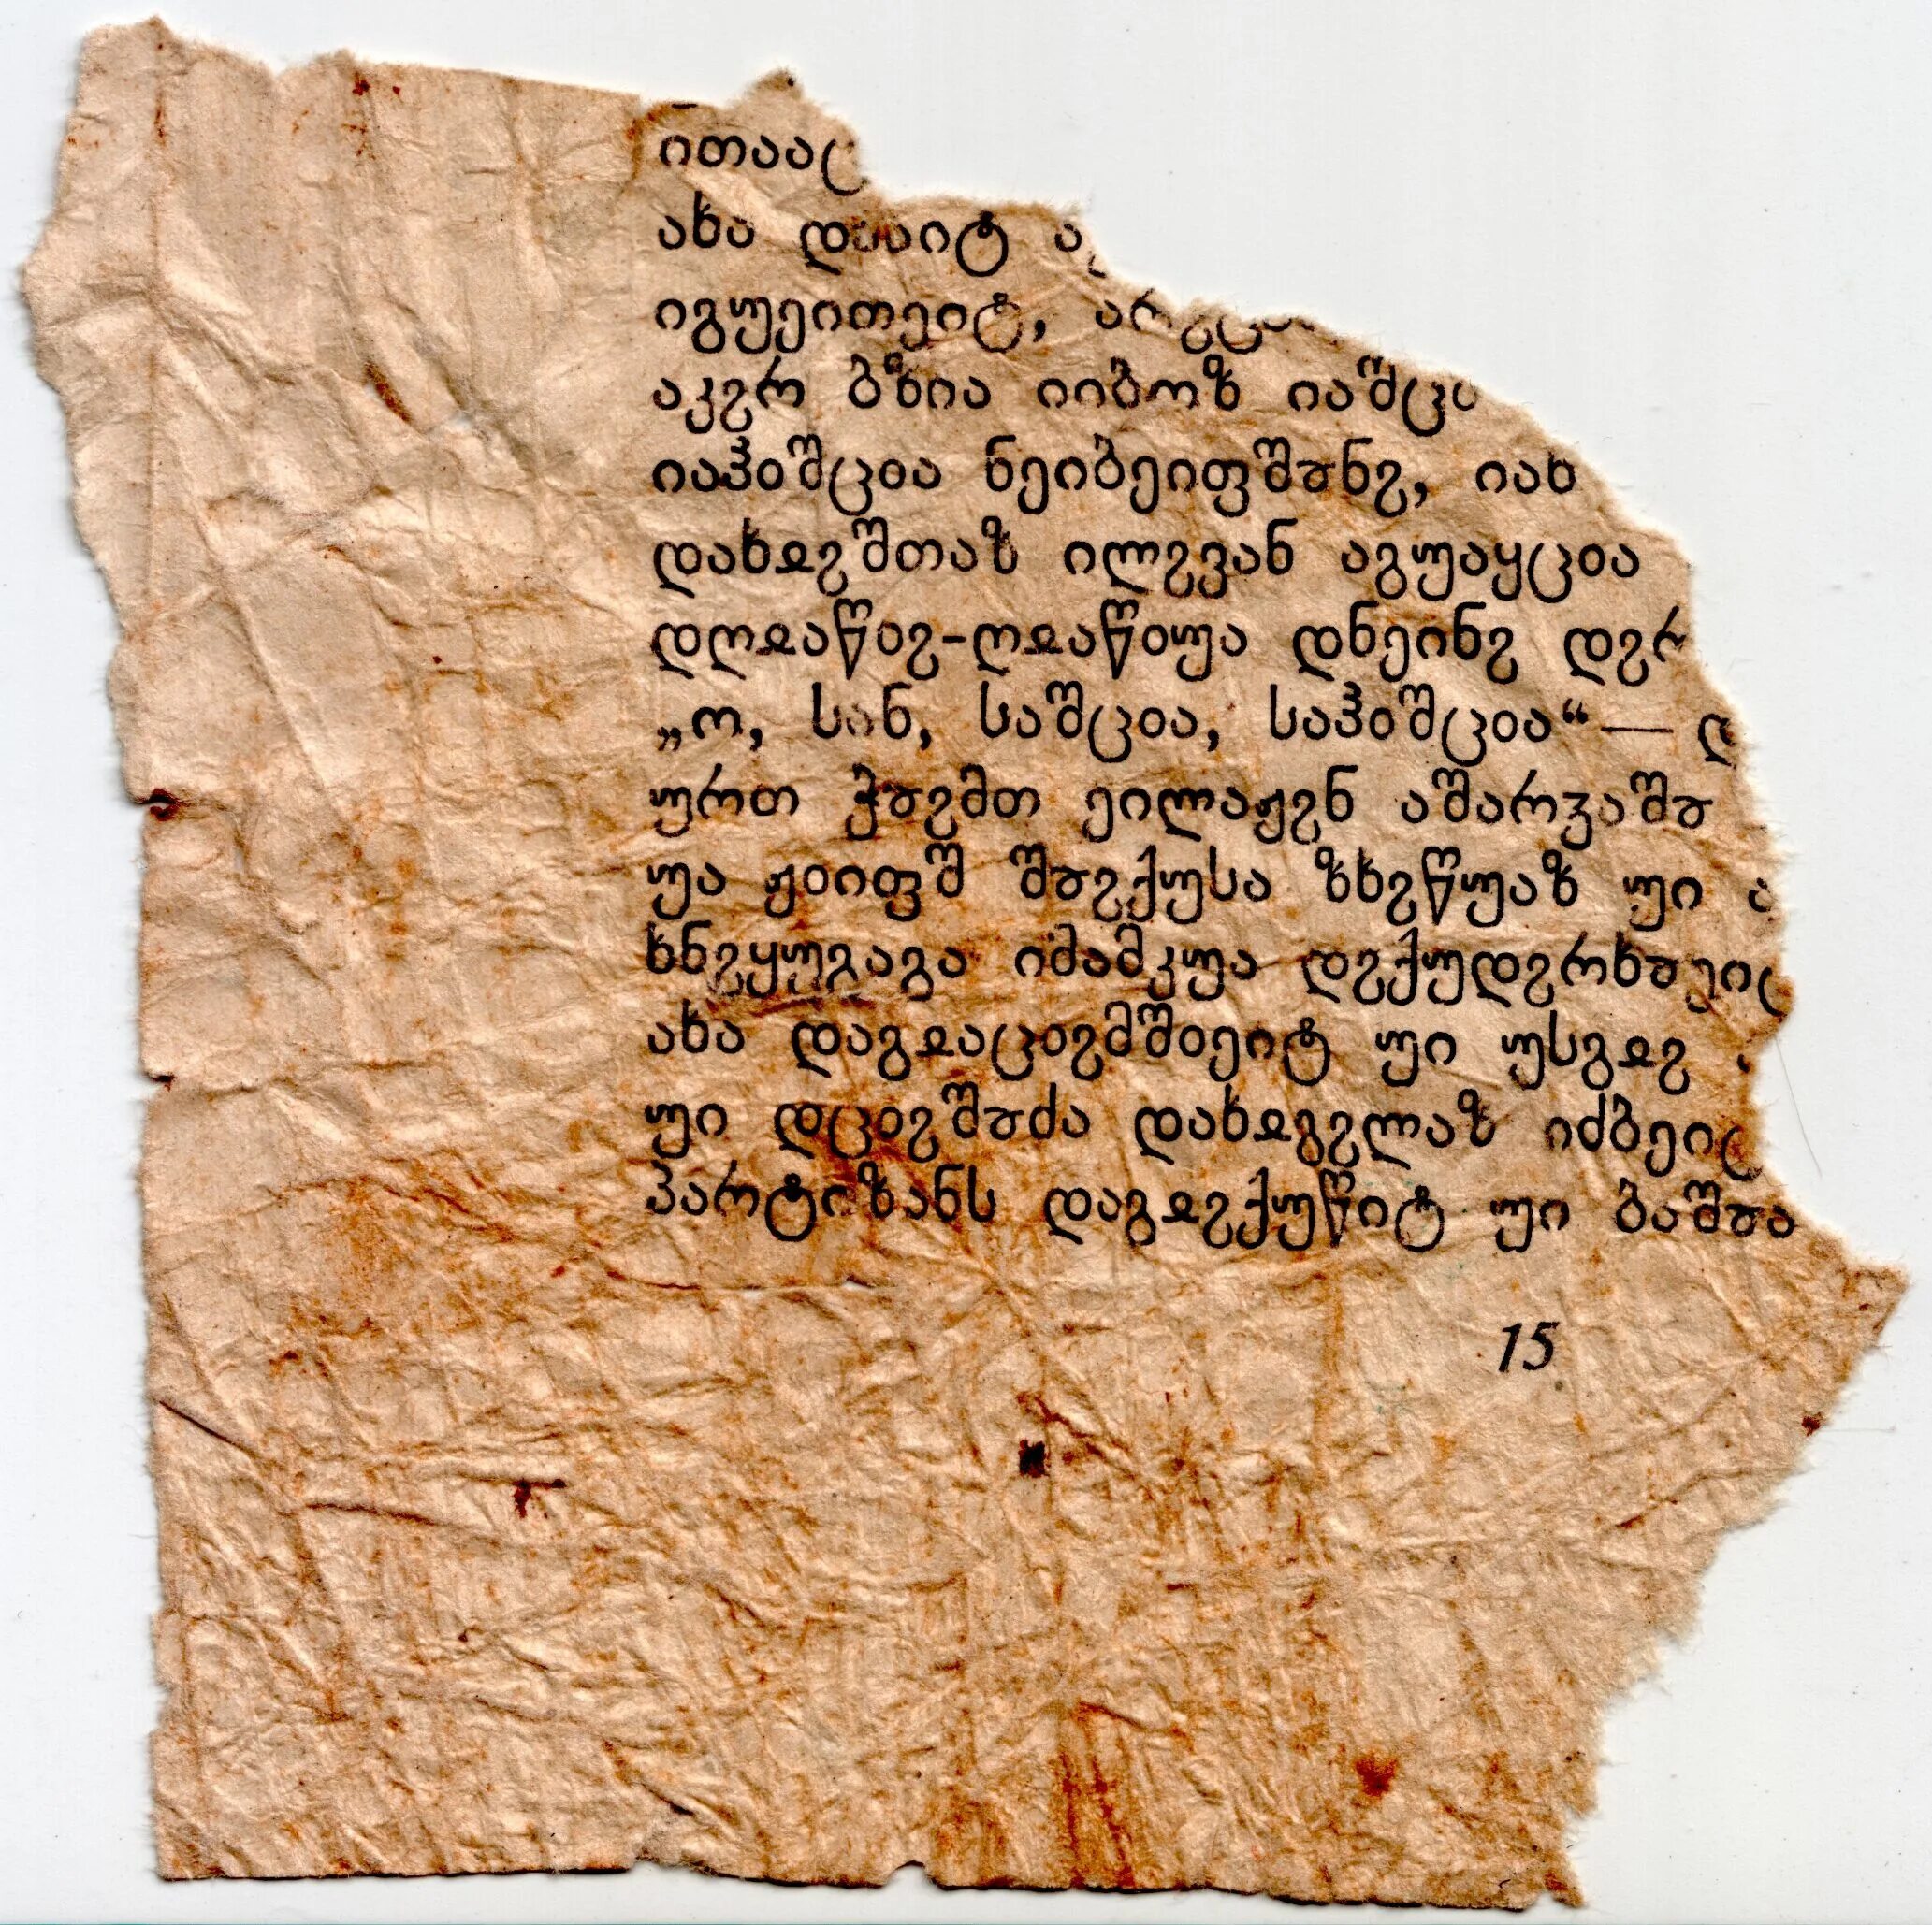 ითაა
ახა დააიტ
იგუეითეიტ,
აკჷრ ბზია იიბოზ იაშცჿ
იაჰჿშცჿა ნეიბეიფშჾნჷ, იახ
დახჲჷშთაზ ილჷვან აგუაყცჿა
დღჲაწჿჷ-ღჲაწჿუა დნეინჷ დჷრ
„ო, სან, საშცჿა, საჰჿშცჿა“ — დ
ურთ ჭჾჷმთ ეილაჟჷნ აშარჳაშჾ
უა ჟჿიფშ შჾჷქუსა ზხჷწუაზ უი
ხნჷყუგაგა იმამკუა დჷქუდჷრხჾეი
ახა დაგჲაცჿჷმშჿეიტ უი უსგჲჷ
უი დცჿჷშჾძა დახჲგჷლაზ იძბეი
პარტიზანს დაგჲჷქუწიტ უი ბაშჾა
15